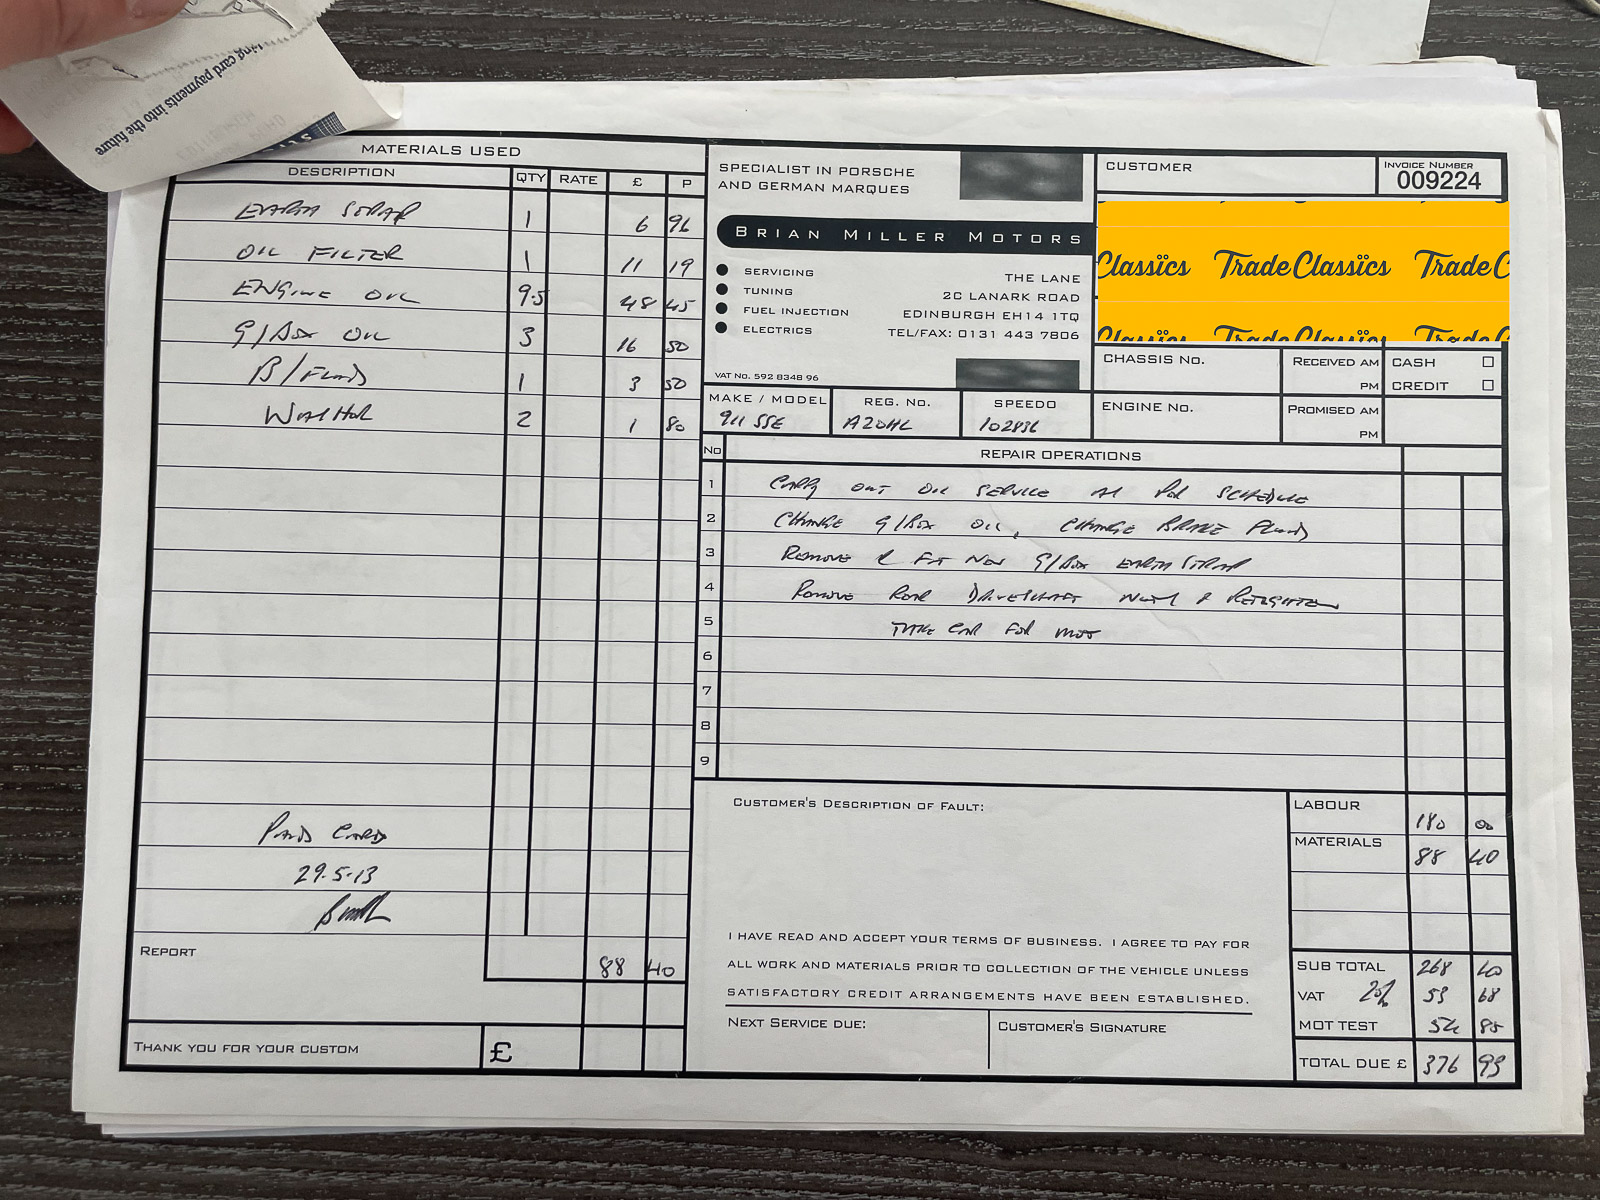 king card payments into the future
MATERIALS USED
DESCRIPTION QTY RATE £ P
EARTH STRAP 1 6 96
OIL FILTER 1 11 19
ENGINE OIL 9.5 48 45
G/BOX OIL 3 16 50
B/FLUID 1 3 50
WASHER 2 1 80
PAID CARD
29.5.13
88 40
REPORT
THANK YOU FOR YOUR CUSTOM £
SPECIALIST IN PORSCHE
AND GERMAN MARQUES
BRIAN MILLER MOTORS
SERVICING
TUNING
FUEL INJECTION
ELECTRICS
THE LANE
2C LANARK ROAD
EDINBURGH EH14 1TQ
TEL/FAX: 0131 443 7806
VAT No. 592 8348 96
CUSTOMER
INVOICE NUMBER
009224
Classics Trade Classics Trade C
Classics Trade Classics Trade C
CHASSIS No. RECEIVED AM CASH
PM CREDIT
MAKE / MODEL REG. No. SPEEDO ENGINE No. PROMISED AM
911 SSE A20HL 102836 PM
No REPAIR OPERATIONS
1 CARRY OUT OIL SERVICE AS PER SCHEDULE
2 CHANGE G/BOX OIL, CHANGE BRAKE FLUID
3 REMOVE & FIT NEW G/BOX EARTH STRAP
4 REMOVE REAR DRIVESHAFT NUTS & RETIGHTEN
5 TAKE CAR FOR MOT
6
7
8
9
CUSTOMER'S DESCRIPTION OF FAULT:
I HAVE READ AND ACCEPT YOUR TERMS OF BUSINESS. I AGREE TO PAY FOR
ALL WORK AND MATERIALS PRIOR TO COLLECTION OF THE VEHICLE UNLESS
SATISFACTORY CREDIT ARRANGEMENTS HAVE BEEN ESTABLISHED.
NEXT SERVICE DUE: CUSTOMER'S SIGNATURE
LABOUR 180 00
MATERIALS 88 40
SUB TOTAL 268 40
VAT 20% 53 68
MOT TEST 54 85
TOTAL DUE £ 376 93